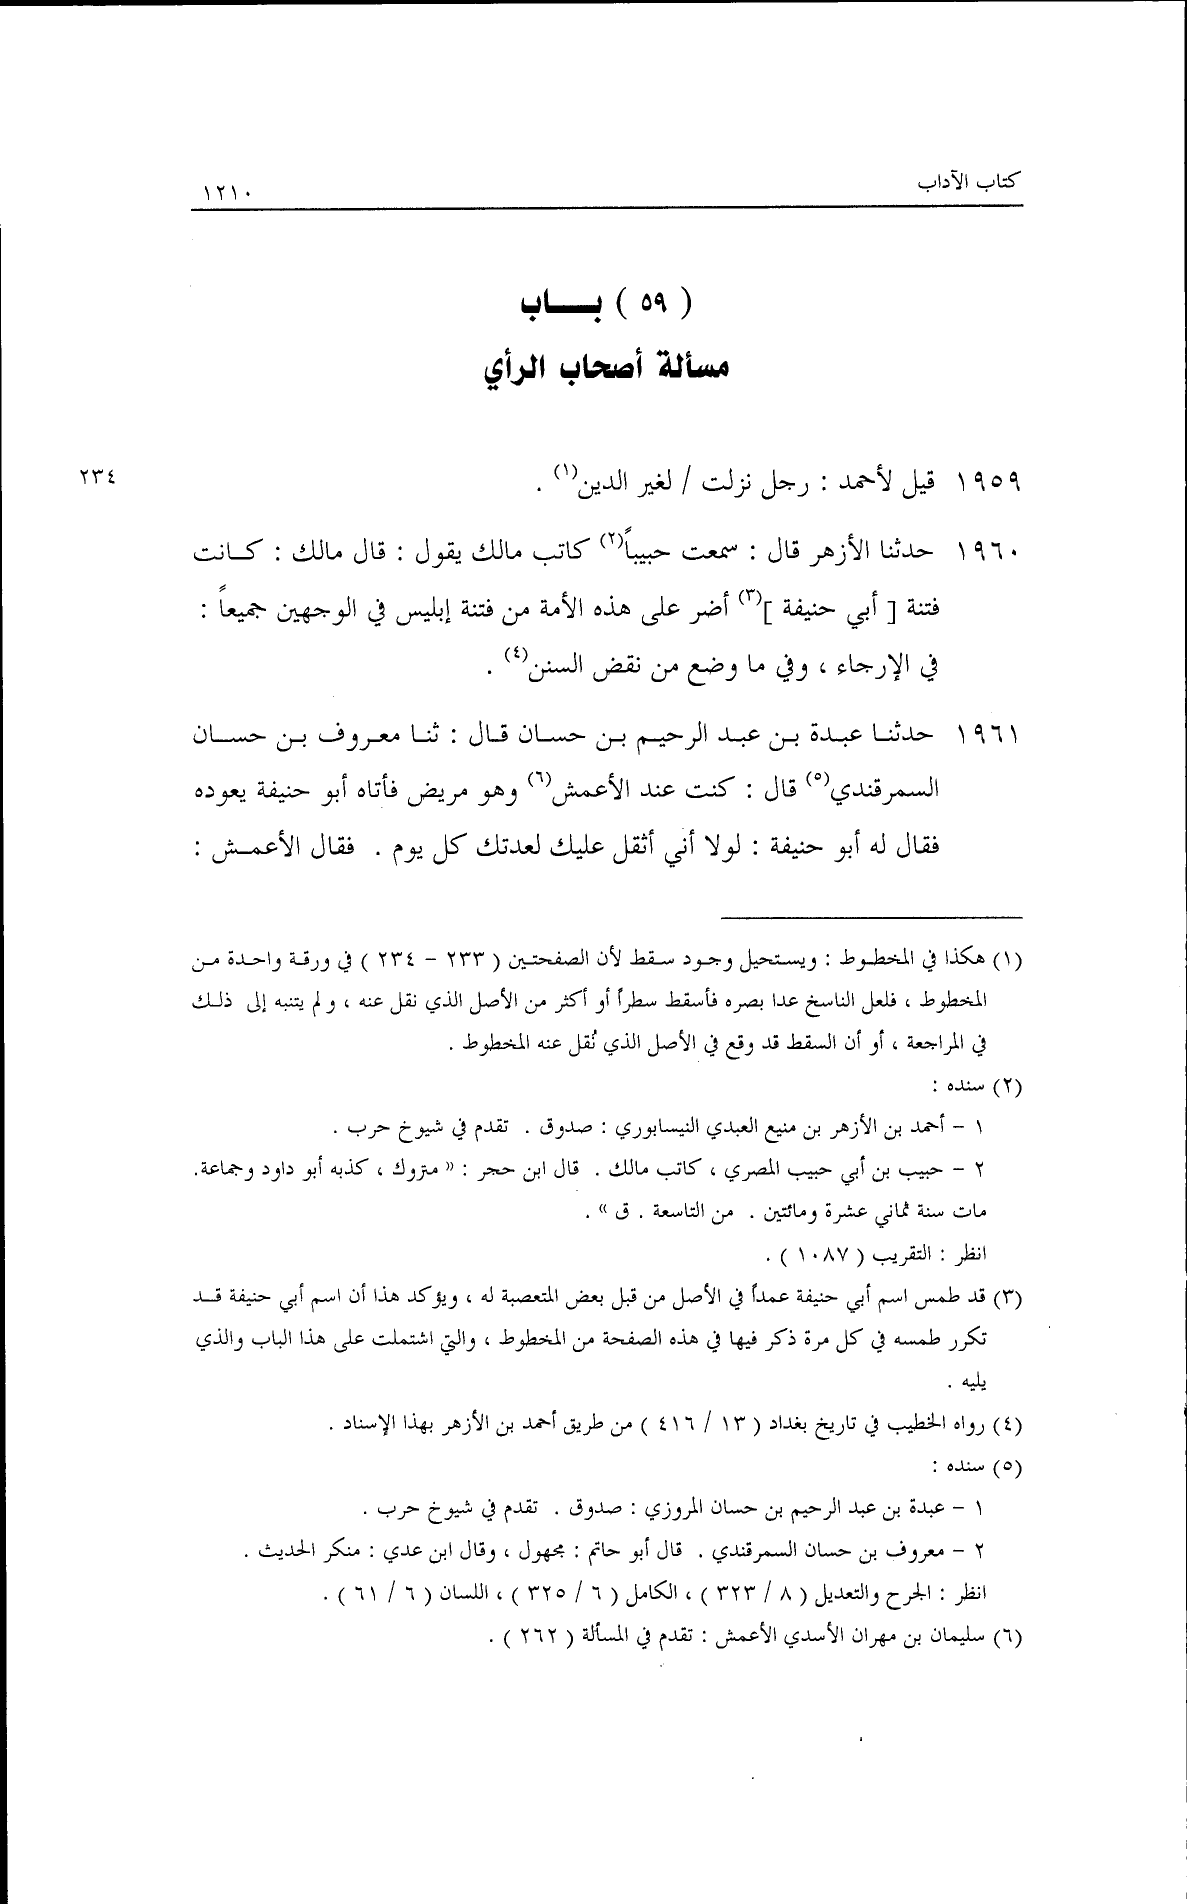 كتاب الآداب ١٢١٠
( ٥٩ ) بــــاب
مسألة أصحاب الرأي
١٩٥٩ قيل لأحمد : رجل نزلت / لغير الدين(١) . ٢٣٤
١٩٦٠ حدثنا الأزهر قال : سمعت حبيباً(٢) كاتب مالك يقول : قال مالك : كــانت
فتنة [ أبي حنيفة ](٣) أضر على هذه الأمة من فتنة إبليس في الوجهين جميعاً :
في الإرجاء ، وفي ما وضع من نقض السنن(٤) .
١٩٦١ حدثنـا عبـدة بـن عبـد الرحيـم بـن حسـان قـال : ثنـا معـروف بـن حســان
السمرقندي(٥) قال : كنت عند الأعمش(٦) وهو مريض فأتاه أبو حنيفة يعوده
فقال له أبو حنيفة : لولا أني أثقل عليك لعدتك كل يوم . فقال الأعمـش :
(١) هكذا في المخطـوط : ويستحيل وجـود سـقط لأن الصفحتـين ( ٢٣٣ - ٢٣٤ ) في ورقـة واحـدة مـن
المخطوط ، فلعل الناسخ عدا بصره فأسقط سطراً أو أكثر من الأصل الذي نقل عنه ، و لم يتنبه إلى ذلـك
في المراجعة ، أو أن السقط قد وقع في الأصل الذي نُقل عنه المخطوط .
(٢) سنده :
١ - أحمد بن الأزهر بن منيع العبدي النيسابوري : صدوق . تقدم في شيوخ حرب .
٢ - حبيب بن أبي حبيب المصري ، كاتب مالك . قال ابن حجر : « متروك ، كذبه أبو داود وجماعة.
مات سنة ثماني عشرة ومائتين . من التاسعة . ق » .
انظر : التقريب ( ١٠٨٧ ) .
(٣) قد طمس اسم أبي حنيفة عمداً في الأصل من قبل بعض المتعصبة له ، ويؤكد هذا أن اسم أبي حنيفة قــد
تكرر طمسه في كل مرة ذكر فيها في هذه الصفحة من المخطوط ، والتي اشتملت على هذا الباب والذي
يليه .
(٤) رواه الخطيب في تاريخ بغداد ( ١٣ / ٤١٦ ) من طريق أحمد بن الأزهر بهذا الإسناد .
(٥) سنده :
١ - عبدة بن عبد الرحيم بن حسان المروزي : صدوق . تقدم في شيوخ حرب .
٢ - معروف بن حسان السمرقندي . قال أبو حاتم : مجهول ، وقال ابن عدي : منكر الحديث .
انظر : الجرح والتعديل ( ٨ / ٣٢٣ ) ، الكامل ( ٦ / ٣٢٥ ) ، اللسان ( ٦ / ٦١ ) .
(٦) سليمان بن مهران الأسدي الأعمش : تقدم في المسألة ( ٢٦٢ ) .